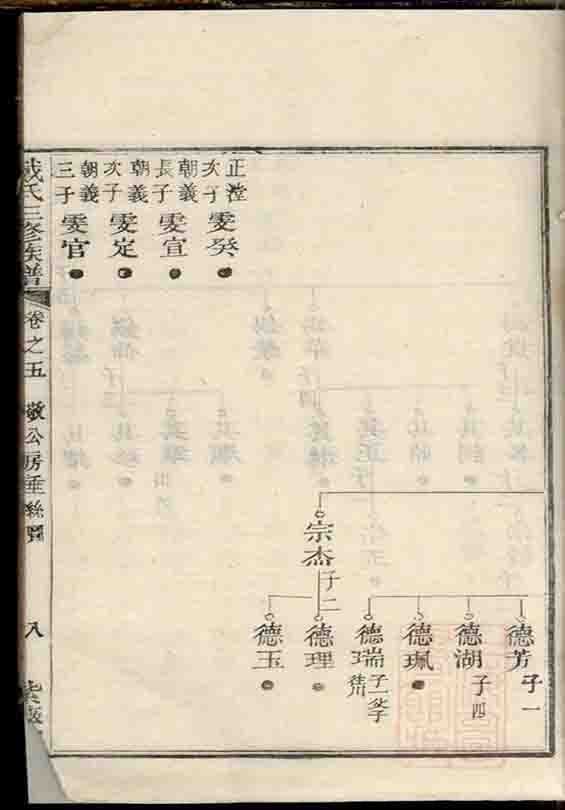 正瀅次子 雯癸
朝義長子 雯宣
朝義次子 雯定
朝義三子 雯官
宗杰 子二
德芳 子一
德湖 子四
德珮
德瑞 子一
德理
德玉
戴氏三修族譜 卷之五 敬公房垂絲圖 八